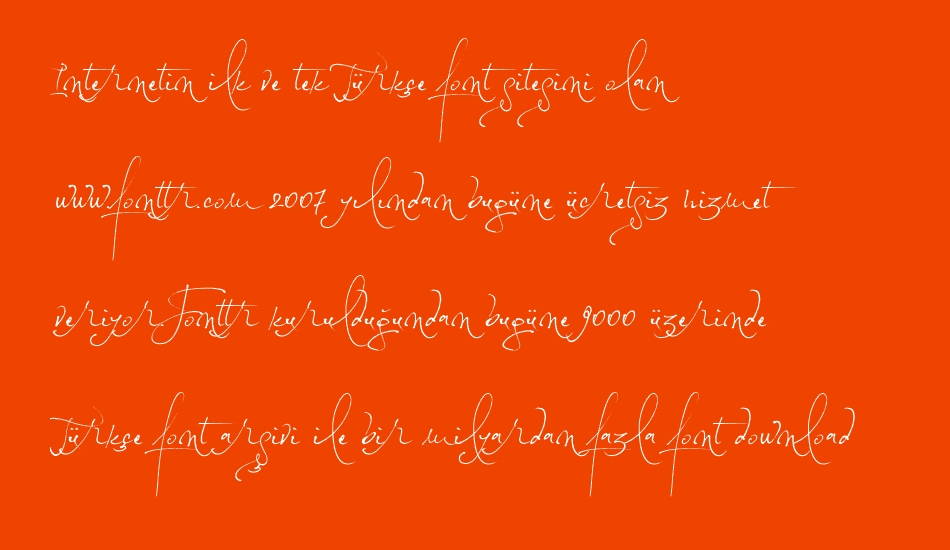 İnternetin ilk ve tek Türkçe font sitesini olan
www.fonttr.com 2007 yılından bugüne ücretsiz hizmet
veriyor.Fonttr kurulduğundan bugüne 9000 üzerinde
Türkçe font arşivi ile bir milyardan fazla font download